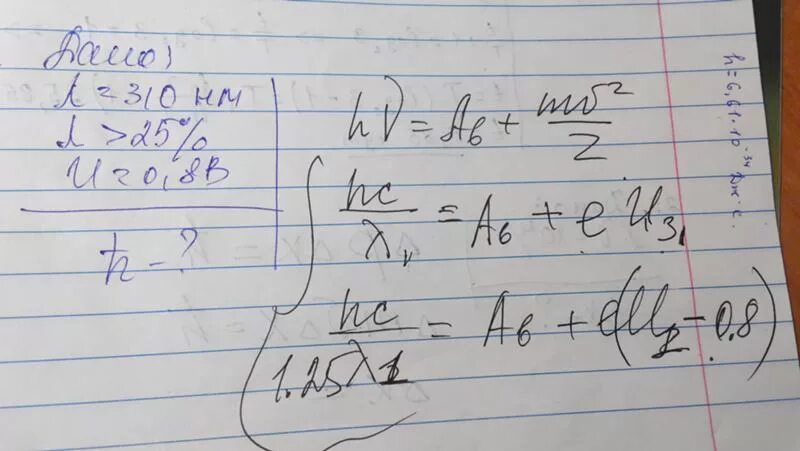 Дано:
λ = 310 нм
λ > 25%
U = 0,8В
ħ - ?
hν = Aв + mv²/2
hc/λ₁ = Aв + eUз₁
hc/1.25λ1 = Aв + e(U1 - 0.8)
h = 6,61·10⁻³⁴ Дж·с.